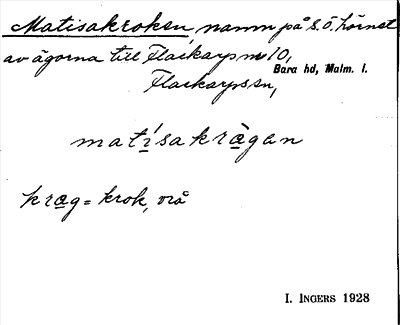 Matisakroken, namn på S.Ö. hörnet
av ägorna till Flackarp nr 10,
Bara hd, Malm. l.
Flackarps sn,
matísakràgan
kràg = krok, vrå
I. INGERS 1928